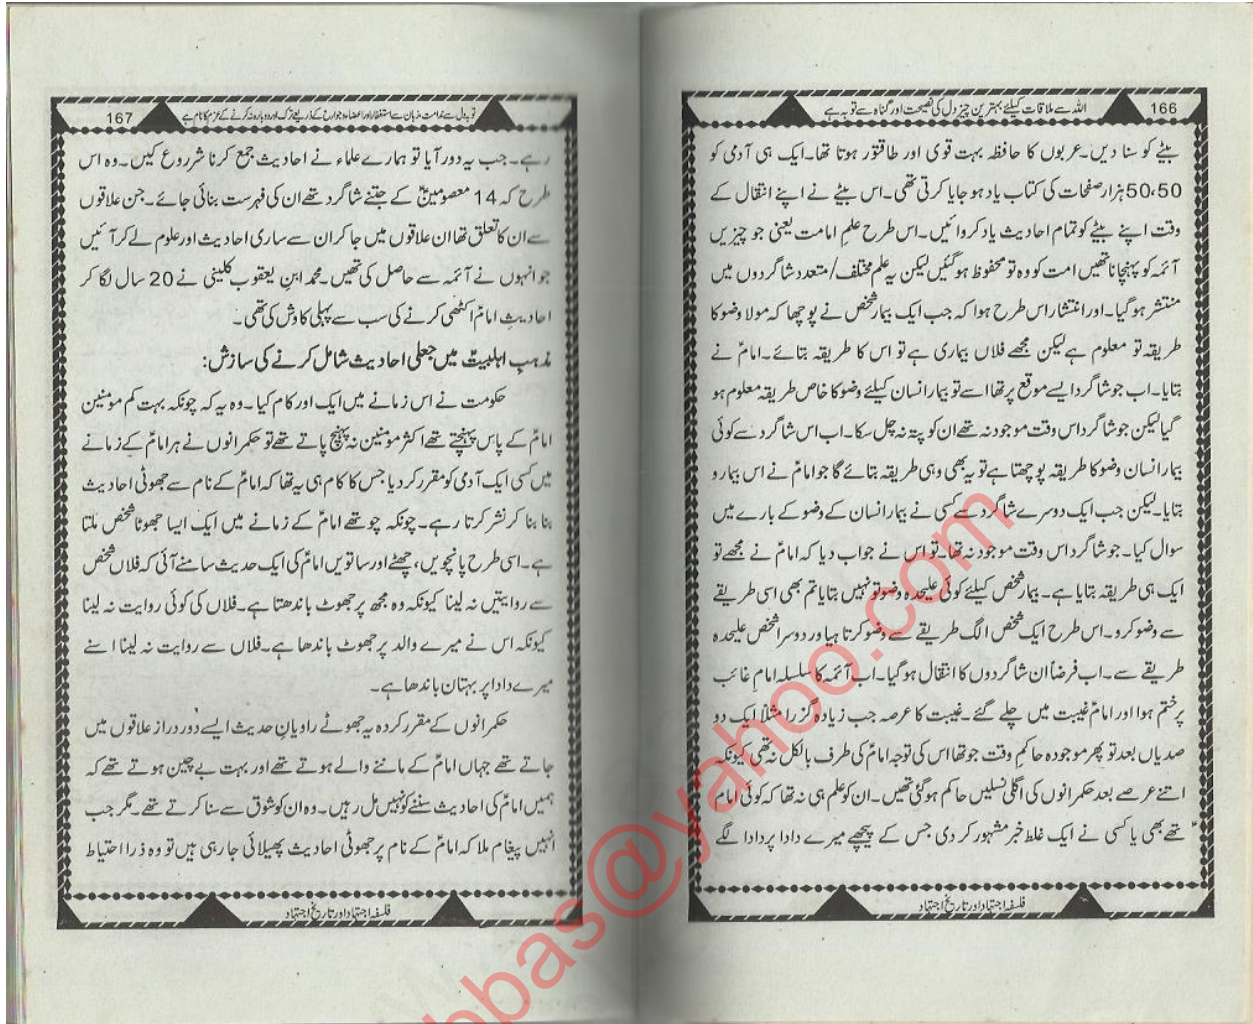 166 اللہ سے ملاقات کیلئے بہترین چیز دل کی نصیحت اور گناہ سے توبہ ہے
بیٹے کو سنا دیں۔ عربوں کا حافظہ بہت قوی اور طاقتور ہوتا تھا۔ ایک ہی آدمی کو
50،50 ہزار صفحات کی کتاب یاد ہو جایا کرتی تھی۔ اس بیٹے نے اپنے انتقال کے
وقت اپنے بیٹے کو تمام احادیث یاد کروائیں۔ اس طرح علمِ امامت یعنی جو چیزیں
آئمہ کو پہنچانا تھیں امت کو وہ تو محفوظ ہو گئیں لیکن یہ علم مختلف/متعدد شاگردوں میں
منتشر ہو گیا۔ اور انتشار اس طرح ہوا کہ جب ایک بیمار شخص نے پوچھا کہ مولا وضو کا
طریقہ تو معلوم ہے لیکن مجھے فلاں بیماری ہے تو اس کا طریقہ بتائیے۔ امامؑ نے
بتایا۔ اب جو شاگرد ایسے موقع پر تھا اسے تو بیمار انسان کیلئے وضو کا خاص طریقہ معلوم ہو
گیا لیکن جو شاگرد اس وقت موجود نہ تھے ان کو پتہ نہ چل سکا۔ اب اس شاگرد سے کوئی
بیمار انسان وضو کا طریقہ پوچھتا ہے تو یہ بھی وہی طریقہ بتائے گا جو امامؑ نے اس بیمار و
بتایا۔ لیکن جب ایک دوسرے شاگرد سے کسی نے بیمار انسان کے وضو کے بارے میں
سوال کیا۔ جو شاگرد اس وقت موجود نہ تھا۔ تو اس نے جواب دیا کہ امامؑ نے مجھے تو
ایک ہی طریقہ بتایا ہے۔ بیمار شخص کیلئے کوئی علیحدہ وضو تو نہیں بتایا تم بھی اسی طریقے
سے وضو کرو۔ اس طرح ایک شخص الگ طریقے سے وضو کرتا ہیا ور دوسرا شخص علیحدہ
طریقے سے۔ اب فرضاً ان شاگردوں کا انتقال ہو گیا۔ اب آئمہ کا سلسلہ امامِ غائب
پر ختم ہوا اور امامؑ غیبت میں چلے گئے۔ غیبت کا عرصہ جب زیادہ گزرا مثلاً ایک دو
صدیاں بعد تو پھر موجودہ حاکمِ وقت جو تھا اس کی توجہ امامؑ کی طرف بالکل نہ تھی کیونکہ
اتنے عرصے بعد حکمرانوں کی اگلی نسلیں حاکم ہو گئی تھیں۔ ان کو علم ہی نہ تھا کہ کوئی امام
تھے بھی یا کسی نے ایک غلط خبر مشہور کر دی جس کے پیچھے میرے دادا پر دادا لگے
فلسفہ اجتہاد اور تاریخ اجتہاد
167 توبہ دل سے ندامت، زبان سے استغفار اور اعضاء و جوارح کے ذریعے ترک اور دوبارہ نہ کرنے کے عزم کا نام ہے
رہے۔ جب یہ دور آیا تو ہمارے علماء نے احادیث جمع کرنا شروع کیں۔ وہ اس
طرح کہ 14 معصومینؑ کے جتنے شاگرد تھے ان کی فہرست بنائی جائے۔ جن علاقوں
سے ان کا تعلق تھا ان علاقوں میں جا کر ان سے ساری احادیث اور علوم لے کر آئیں
جو انہوں نے آئمہ سے حاصل کی تھیں۔ محمد ابنِ یعقوب کلینی نے 20 سال لگا کر
احادیثِ امامؑ اکٹھی کرنے کی سب سے پہلی کاوش کی تھی۔
مذہبِ اہلبیتؑ میں جعلی احادیث شامل کرنے کی سازش:
حکومت نے اس زمانے میں ایک اور کام کیا۔ وہ یہ کہ چونکہ بہت کم مومنین
امامؑ کے پاس پہنچتے تھے اکثر مومنین نہ پہنچ پاتے تھے تو حکمرانوں نے ہر امامؑ کے زمانے
میں کسی ایک آدمی کو مقرر کر دیا جس کا کام ہی یہ تھا کہ امامؑ کے نام سے جھوٹی احادیث
بنا بنا کر نشر کرتا رہے۔ چونکہ چوتھے امامؑ کے زمانے میں ایک ایسا جھوٹا شخص ملتا
ہے۔ اسی طرح پانچویں، چھٹے اور ساتویں امامؑ کی ایک حدیث سامنے آئی کہ فلاں شخص
سے روایتیں نہ لینا کیونکہ وہ مجھ پر جھوٹ باندھتا ہے۔ فلاں کی کوئی روایت نہ لینا
کیونکہ اس نے میرے والد پر جھوٹ باندھا ہے۔ فلاں سے روایت نہ لینا اسنے
میرے دادا پر بہتان باندھا ہے۔
حکمرانوں کے مقرر کردہ یہ جھوٹے راویانِ حدیث ایسے دُور دراز علاقوں میں
جاتے تھے جہاں امامؑ کے ماننے والے ہوتے تھے اور بہت بے چین ہوتے تھے کہ
ہمیں امامؑ کی احادیث سننے کو نہیں مل رہیں۔ وہ ان کو شوق سے سنا کرتے تھے۔ مگر جب
انہیں پیغام ملا کہ امامؑ کے نام پر جھوٹی احادیث پھیلائی جا رہی ہیں تو وہ ذرا احتیاط
فلسفہ اجتہاد اور تاریخ اجتہاد
bbas@yahoo.com